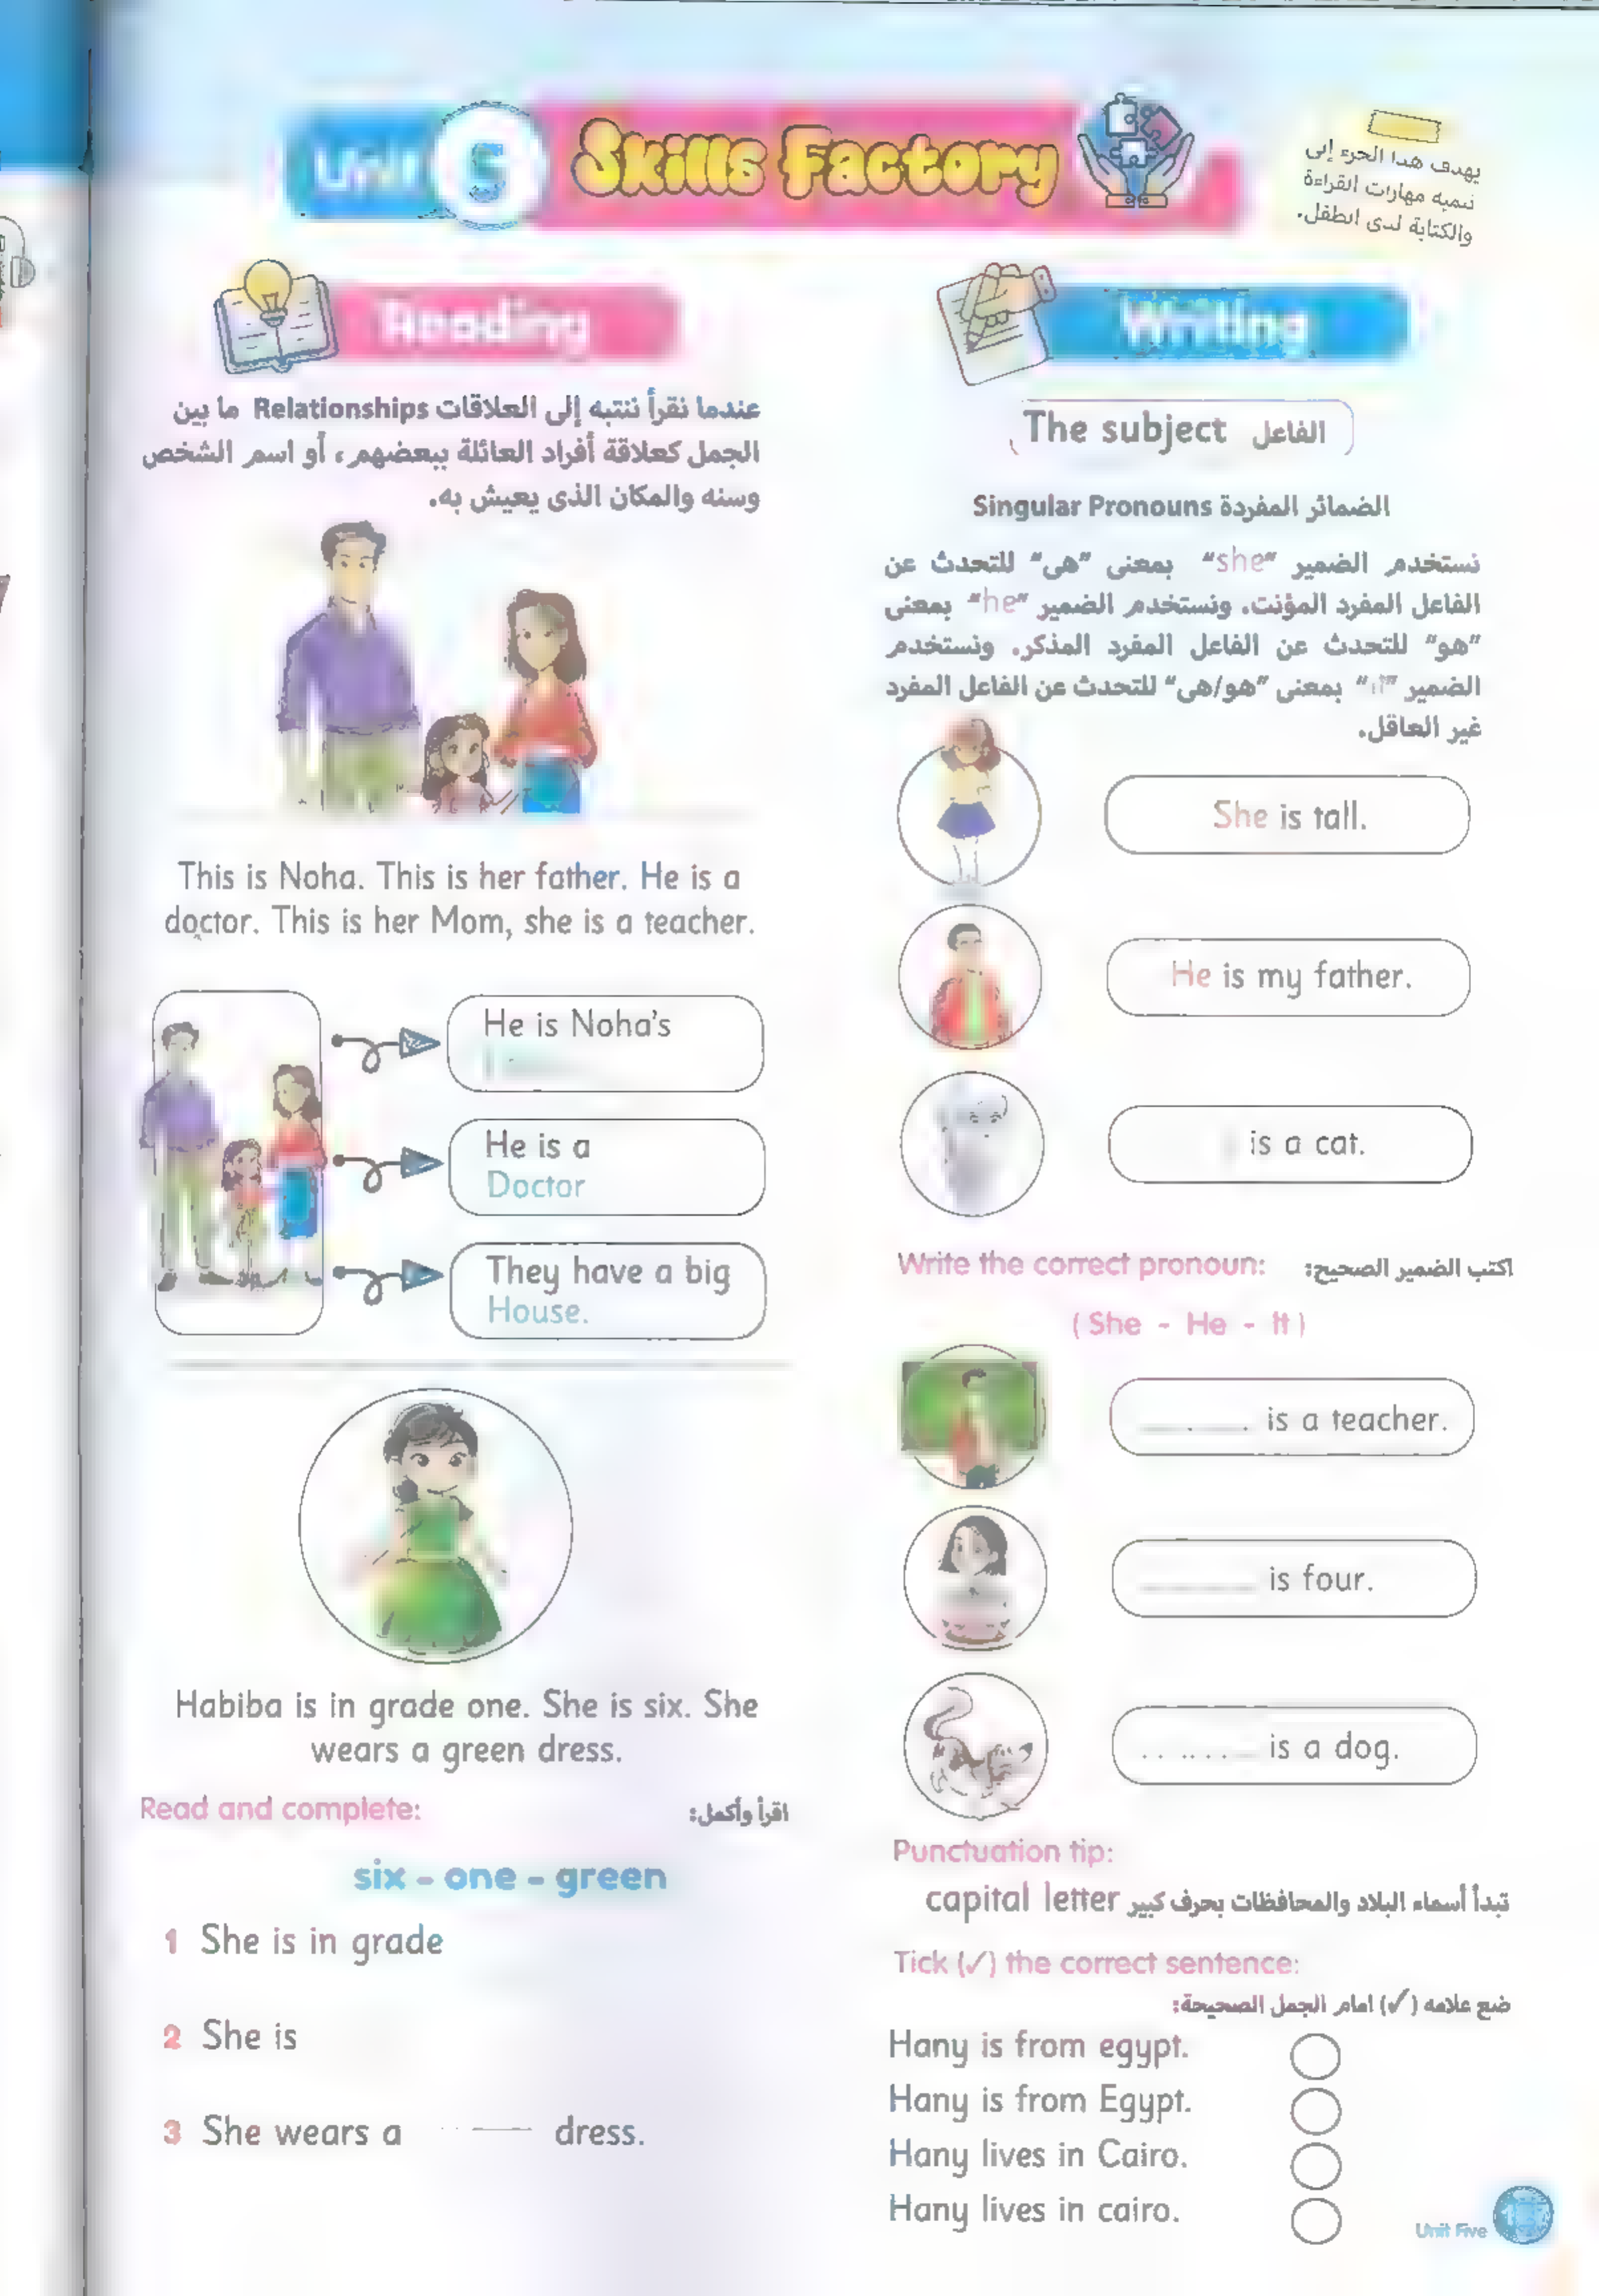 Unit 5 Skills Factory
يهدف هذا الجزء إلى
تنمية مهارات القراءة
والكتابة لدى الطفل.
Reading
عندما نقرأ ننتبه إلى العلاقات Relationships ما بين
الجمل كعلاقة أفراد العائلة ببعضهم، أو اسم الشخص
وسنه والمكان الذى يعيش به.
This is Noha. This is her father. He is a
doctor. This is her Mom, she is a teacher.
He is Noha's
He is a
Doctor
They have a big
House.
Habiba is in grade one. She is six. She
wears a green dress.
Read and complete: اقرأ وأكمل:
six - one - green
1 She is in grade
2 She is
3 She wears a dress.
Writing
The subject الفاعل
Singular Pronouns الضمائر المفردة
نستخدم الضمير "she" بمعنى "هى" للتحدث عن
الفاعل المفرد المؤنث. ونستخدم الضمير "he" بمعنى
"هو" للتحدث عن الفاعل المفرد المذكر. ونستخدم
الضمير "it" بمعنى "هو/هى" للتحدث عن الفاعل المفرد
غير العاقل.
She is tall.
He is my father.
is a cat.
Write the correct pronoun: اكتب الضمير الصحيح:
( She - He - It )
is a teacher.
is four.
is a dog.
Punctuation tip:
تبدأ أسماء البلاد والمحافظات بحرف كبير capital letter
Tick (✓) the correct sentence:
ضع علامه (✓) امام الجمل الصحيحة:
Hany is from egypt.
Hany is from Egypt.
Hany lives in Cairo.
Hany lives in cairo.
Unit Five